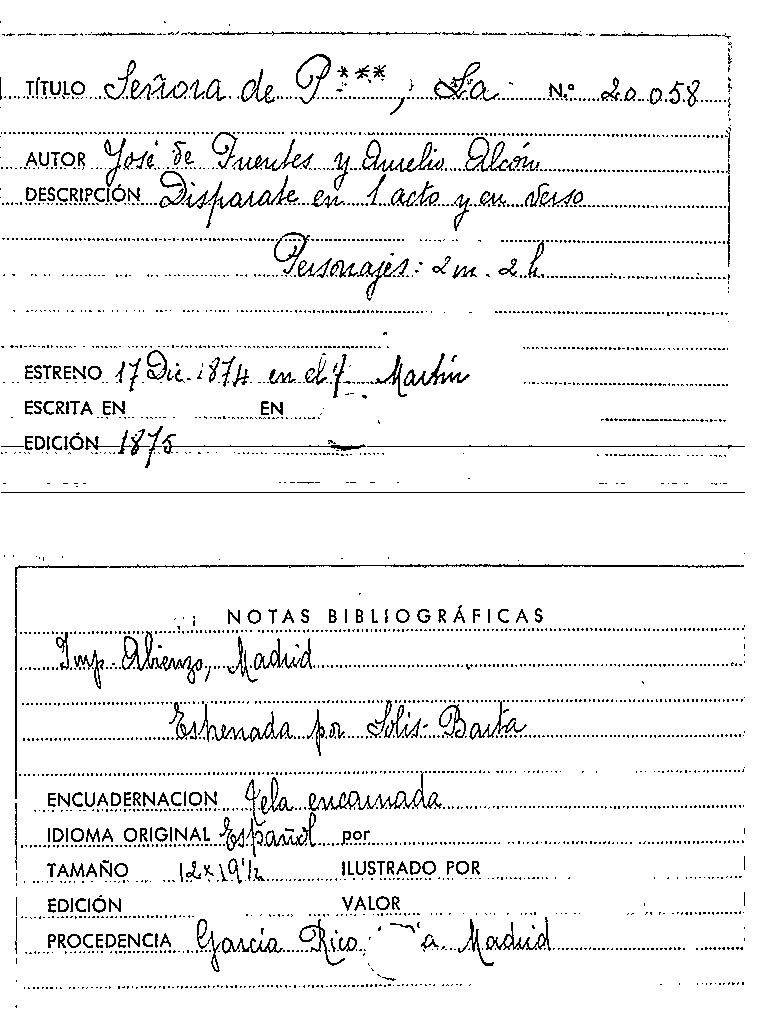 TÍTULO Señora de P***, La N.º 20.058
AUTOR José de Fuentes y Aurelio Alcón
DESCRIPCIÓN Disparate en 1 acto y en verso
Personajes: 2 m. 2 h.
ESTRENO 17 Dic. 1874 en el T. Martín
ESCRITA EN EN
EDICIÓN 1875
NOTAS BIBLIOGRÁFICAS
Imp. Abienzo, Madrid
Estrenada por Solis-
ENCUADERNACION Tela encarnada
IDIOMA ORIGINAL Español por
TAMAÑO 12 x 19 1/2 ILUSTRADO POR
EDICIÓN VALOR
PROCEDENCIA García Rico Madrid